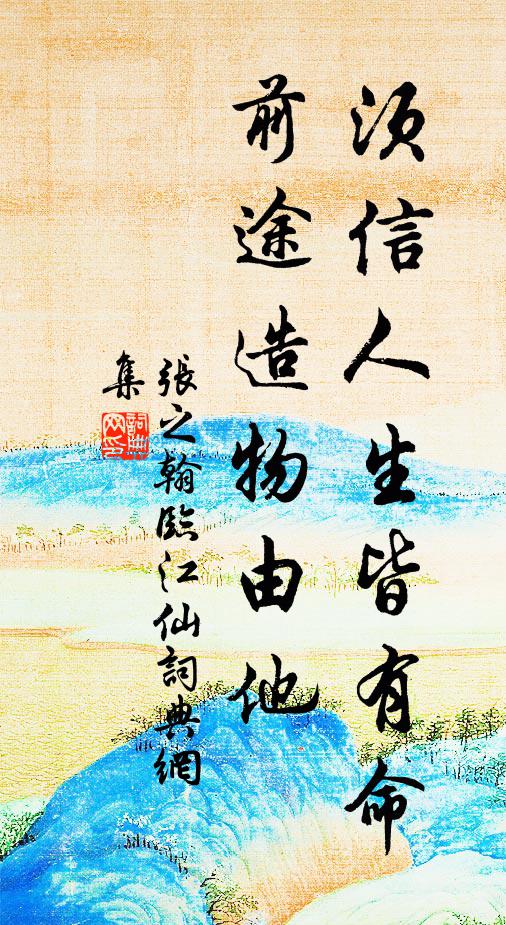 須信人生皆有命
前途造物由他
張之翰臨江仙詞典網
集
詞典
网